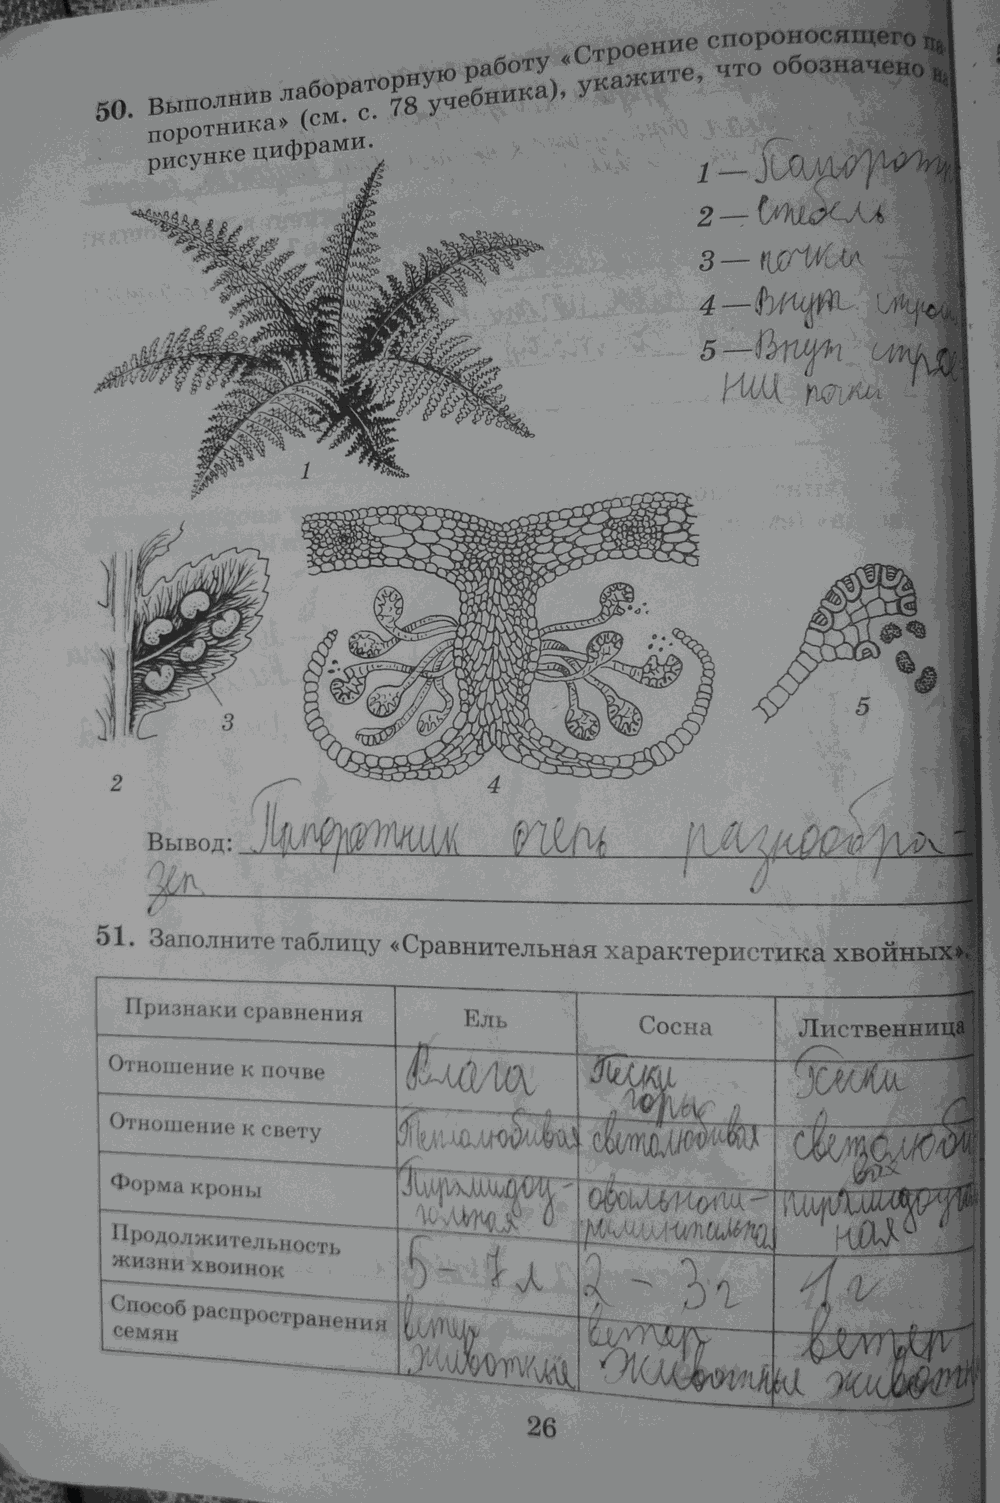 50. Выполнив лабораторную работу «Строение спороносящего па-
поротника» (см. с. 78 учебника), укажите, что обозначено на
рисунке цифрами.
1 — Папорот
2 — Стебель
3 — почки
4 — Внут строе
5 — Внут строе-
ние почки
1
2
3
4
5
Вывод: Папоротник очень разнообра-
зен
51. Заполните таблицу «Сравнительная характеристика хвойных».
Признаки сравнения Ель Сосна Лиственница
Отношение к почве Влага Пески горы Пески
Отношение к свету Теплолюбивая светолюбивая светолюби вая
Форма кроны Пирамидоу- гольная овально
Продолжительность жизни хвоинок 5 – 7 л 2 – 3 г 1 г
Способ распространения семян ветер животные ветер животные ветер животн
26